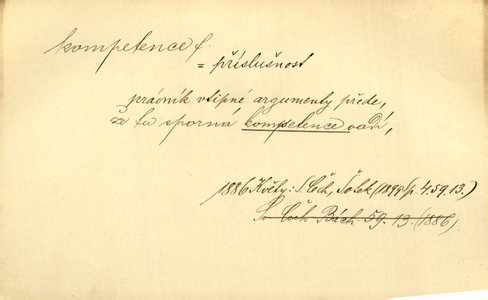 kompetence f.
= příslušnost
právník vtipné argumenty přede,
že tu sporná kompetence vadí,
1886 Květy: S. Čech, Šotek (1899) p. 4. 59. 13.)
Sv. Čech Bách. 59. 13. (1886)